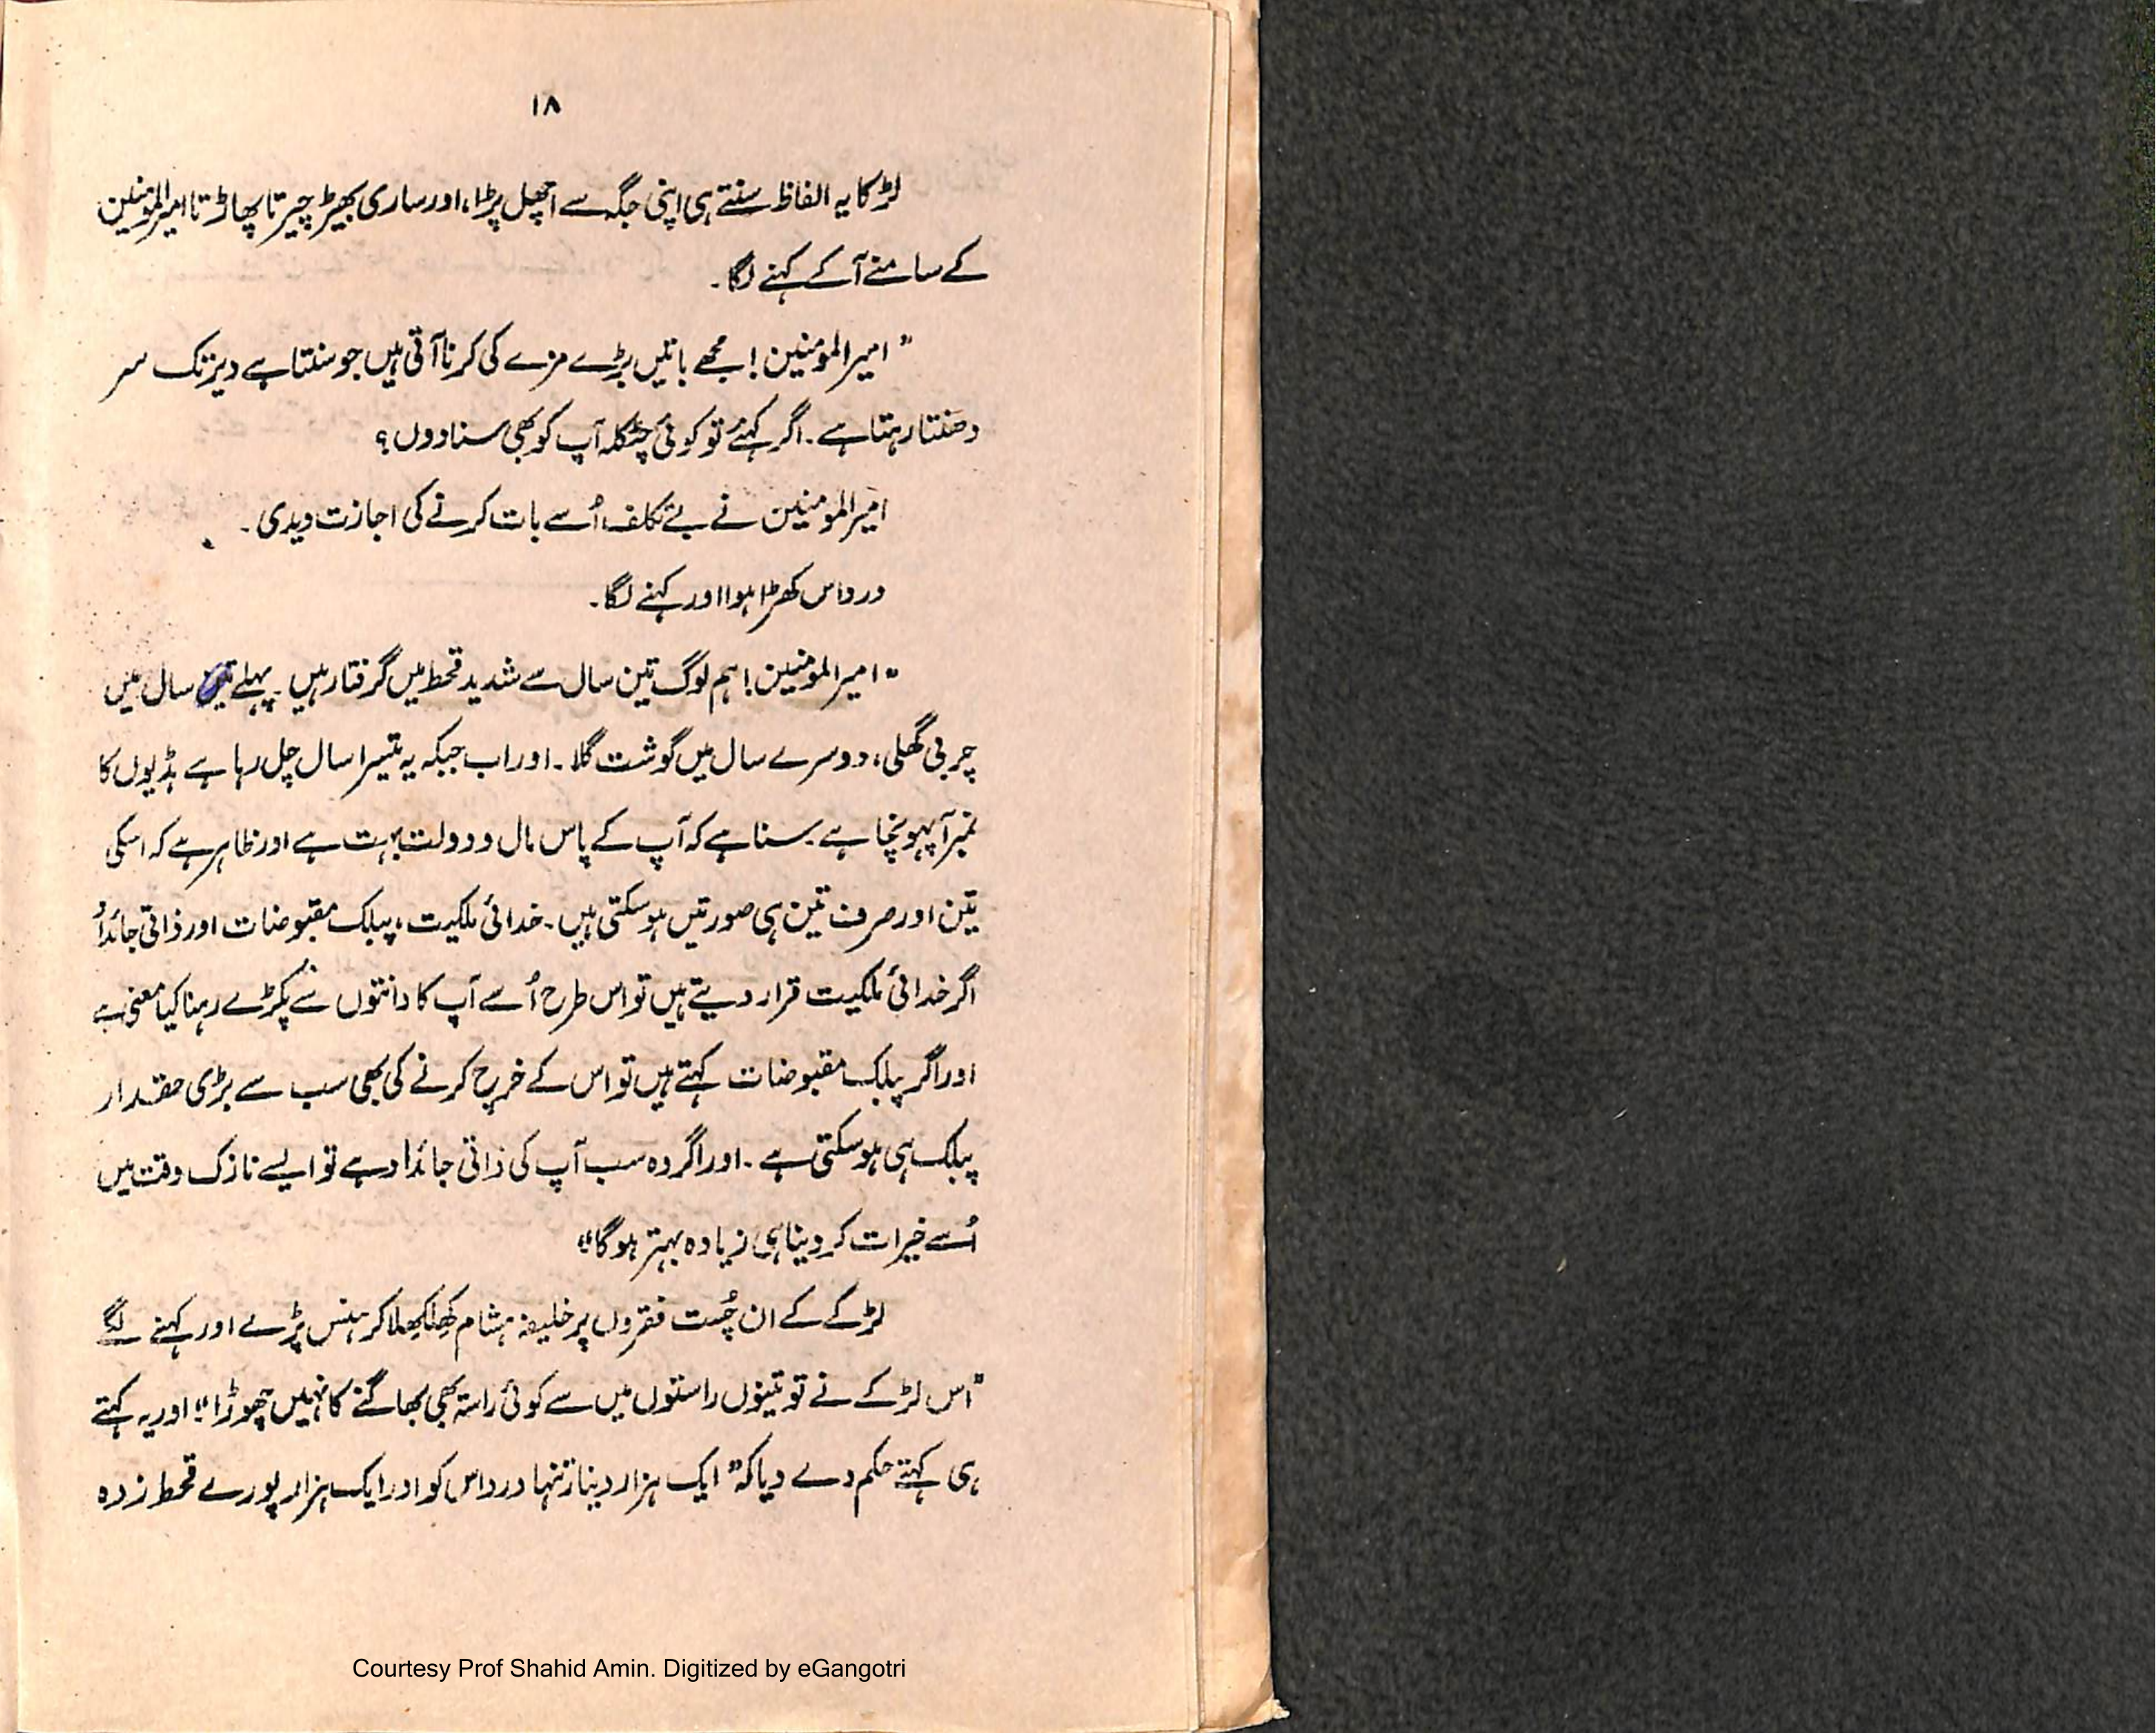 ۱۸
لڑکا یہ الفاظ سنتے ہی اپنی جگہ سے اچھل پڑا، اور ساری بھیڑ چیرتا پھاڑتا امیرالمومنین
کے سامنے آ کے کہنے لگا۔
"امیرالمومنین! مجھے باتیں بڑے مزے کی کرنا آتی ہیں جو سنتا ہے دیر تک سر
دھنتا رہتا ہے۔ اگر کہئے تو کوئی چٹکلہ آپ کو بھی سنا دوں؟
امیرالمومنین نے بے تکلف اُسے بات کرنے کی اجازت دیدی۔
درداس کھڑا ہوا اور کہنے لگا۔
"امیرالمومنین! ہم لوگ تین سال سے شدید قحط میں گرفتار ہیں۔ پہلے سال میں
چربی گھلی، دوسرے سال میں گوشت گلا۔ اور اب جبکہ یہ تیسرا سال چل رہا ہے ہڈیوں کا
نمبر آپہونچا ہے۔ سنا ہے کہ آپ کے پاس مال و دولت بہت ہے اور ظاہر ہے کہ اسکی
تین اور صرف تین ہی صورتیں ہوسکتی ہیں۔ خدائی ملکیت، پبلک مقبوضات اور ذاتی جائداد
اگر خدائی ملکیت قرار دیتے ہیں تو اس طرح اُسے آپ کا دانتوں سے پکڑے رہنا کیا معنی ہے
اور اگر پبلک مقبوضات کہتے ہیں تو اس کے خرچ کرنے کی بھی سب سے بڑی حقدار
پبلک ہی ہوسکتی ہے۔ اور اگر وہ سب آپ کی ذاتی جائداد ہے تو ایسے نازک وقت میں
اُسے خیرات کر دینا ہی زیادہ بہتر ہوگا"
لڑکے کے ان چُست فقروں پر خلیفہ ہشام کھلکھلا کر ہنس پڑے اور کہنے لگے
"اس لڑکے نے تو تینوں راستوں میں سے کوئی راستہ بھی بھاگنے کا نہیں چھوڑا" اور یہ کہتے
ہی کہتے حکم دے دیا کہ "ایک ہزار دینار تنہا درداس کو اور ایک ہزار پورے قحط زدہ
Courtesy Prof Shahid Amin. Digitized by eGangotri